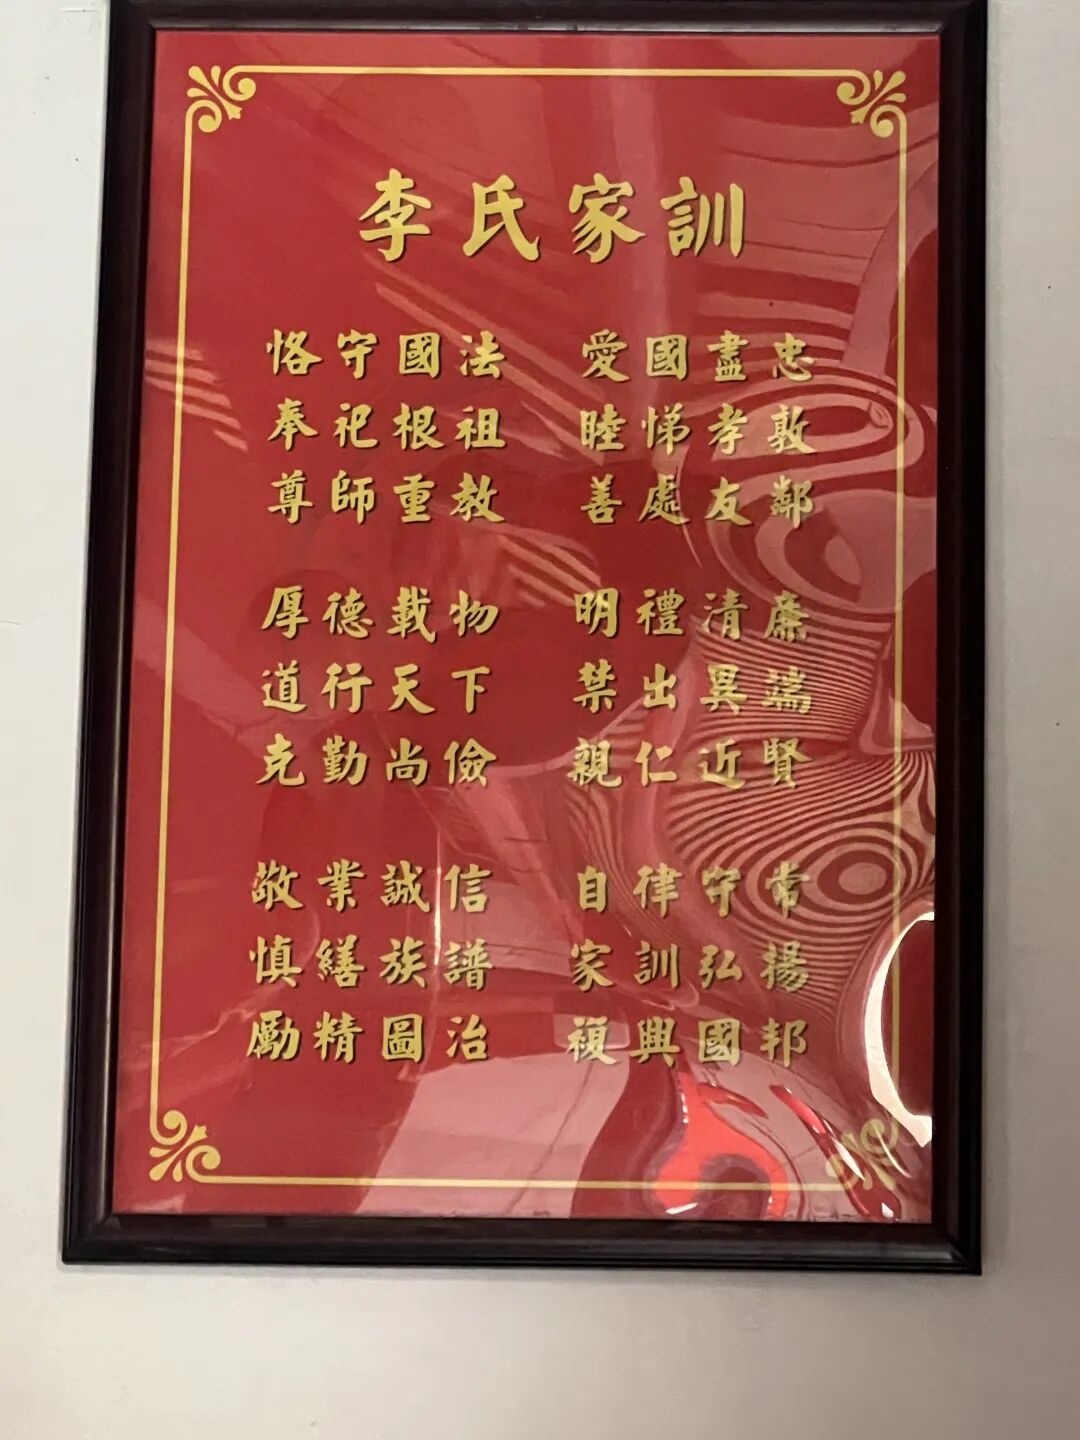 李氏家訓
恪守國法 愛國盡忠
奉祀根祖 睦悌孝敦
尊師重教 善處友鄰
厚德載物 明禮清廉
道行天下 禁出異端
克勤尚儉 親仁近賢
敬業誠信 自律守常
慎繕族譜 家訓弘揚
勵精圖治 複興國邦